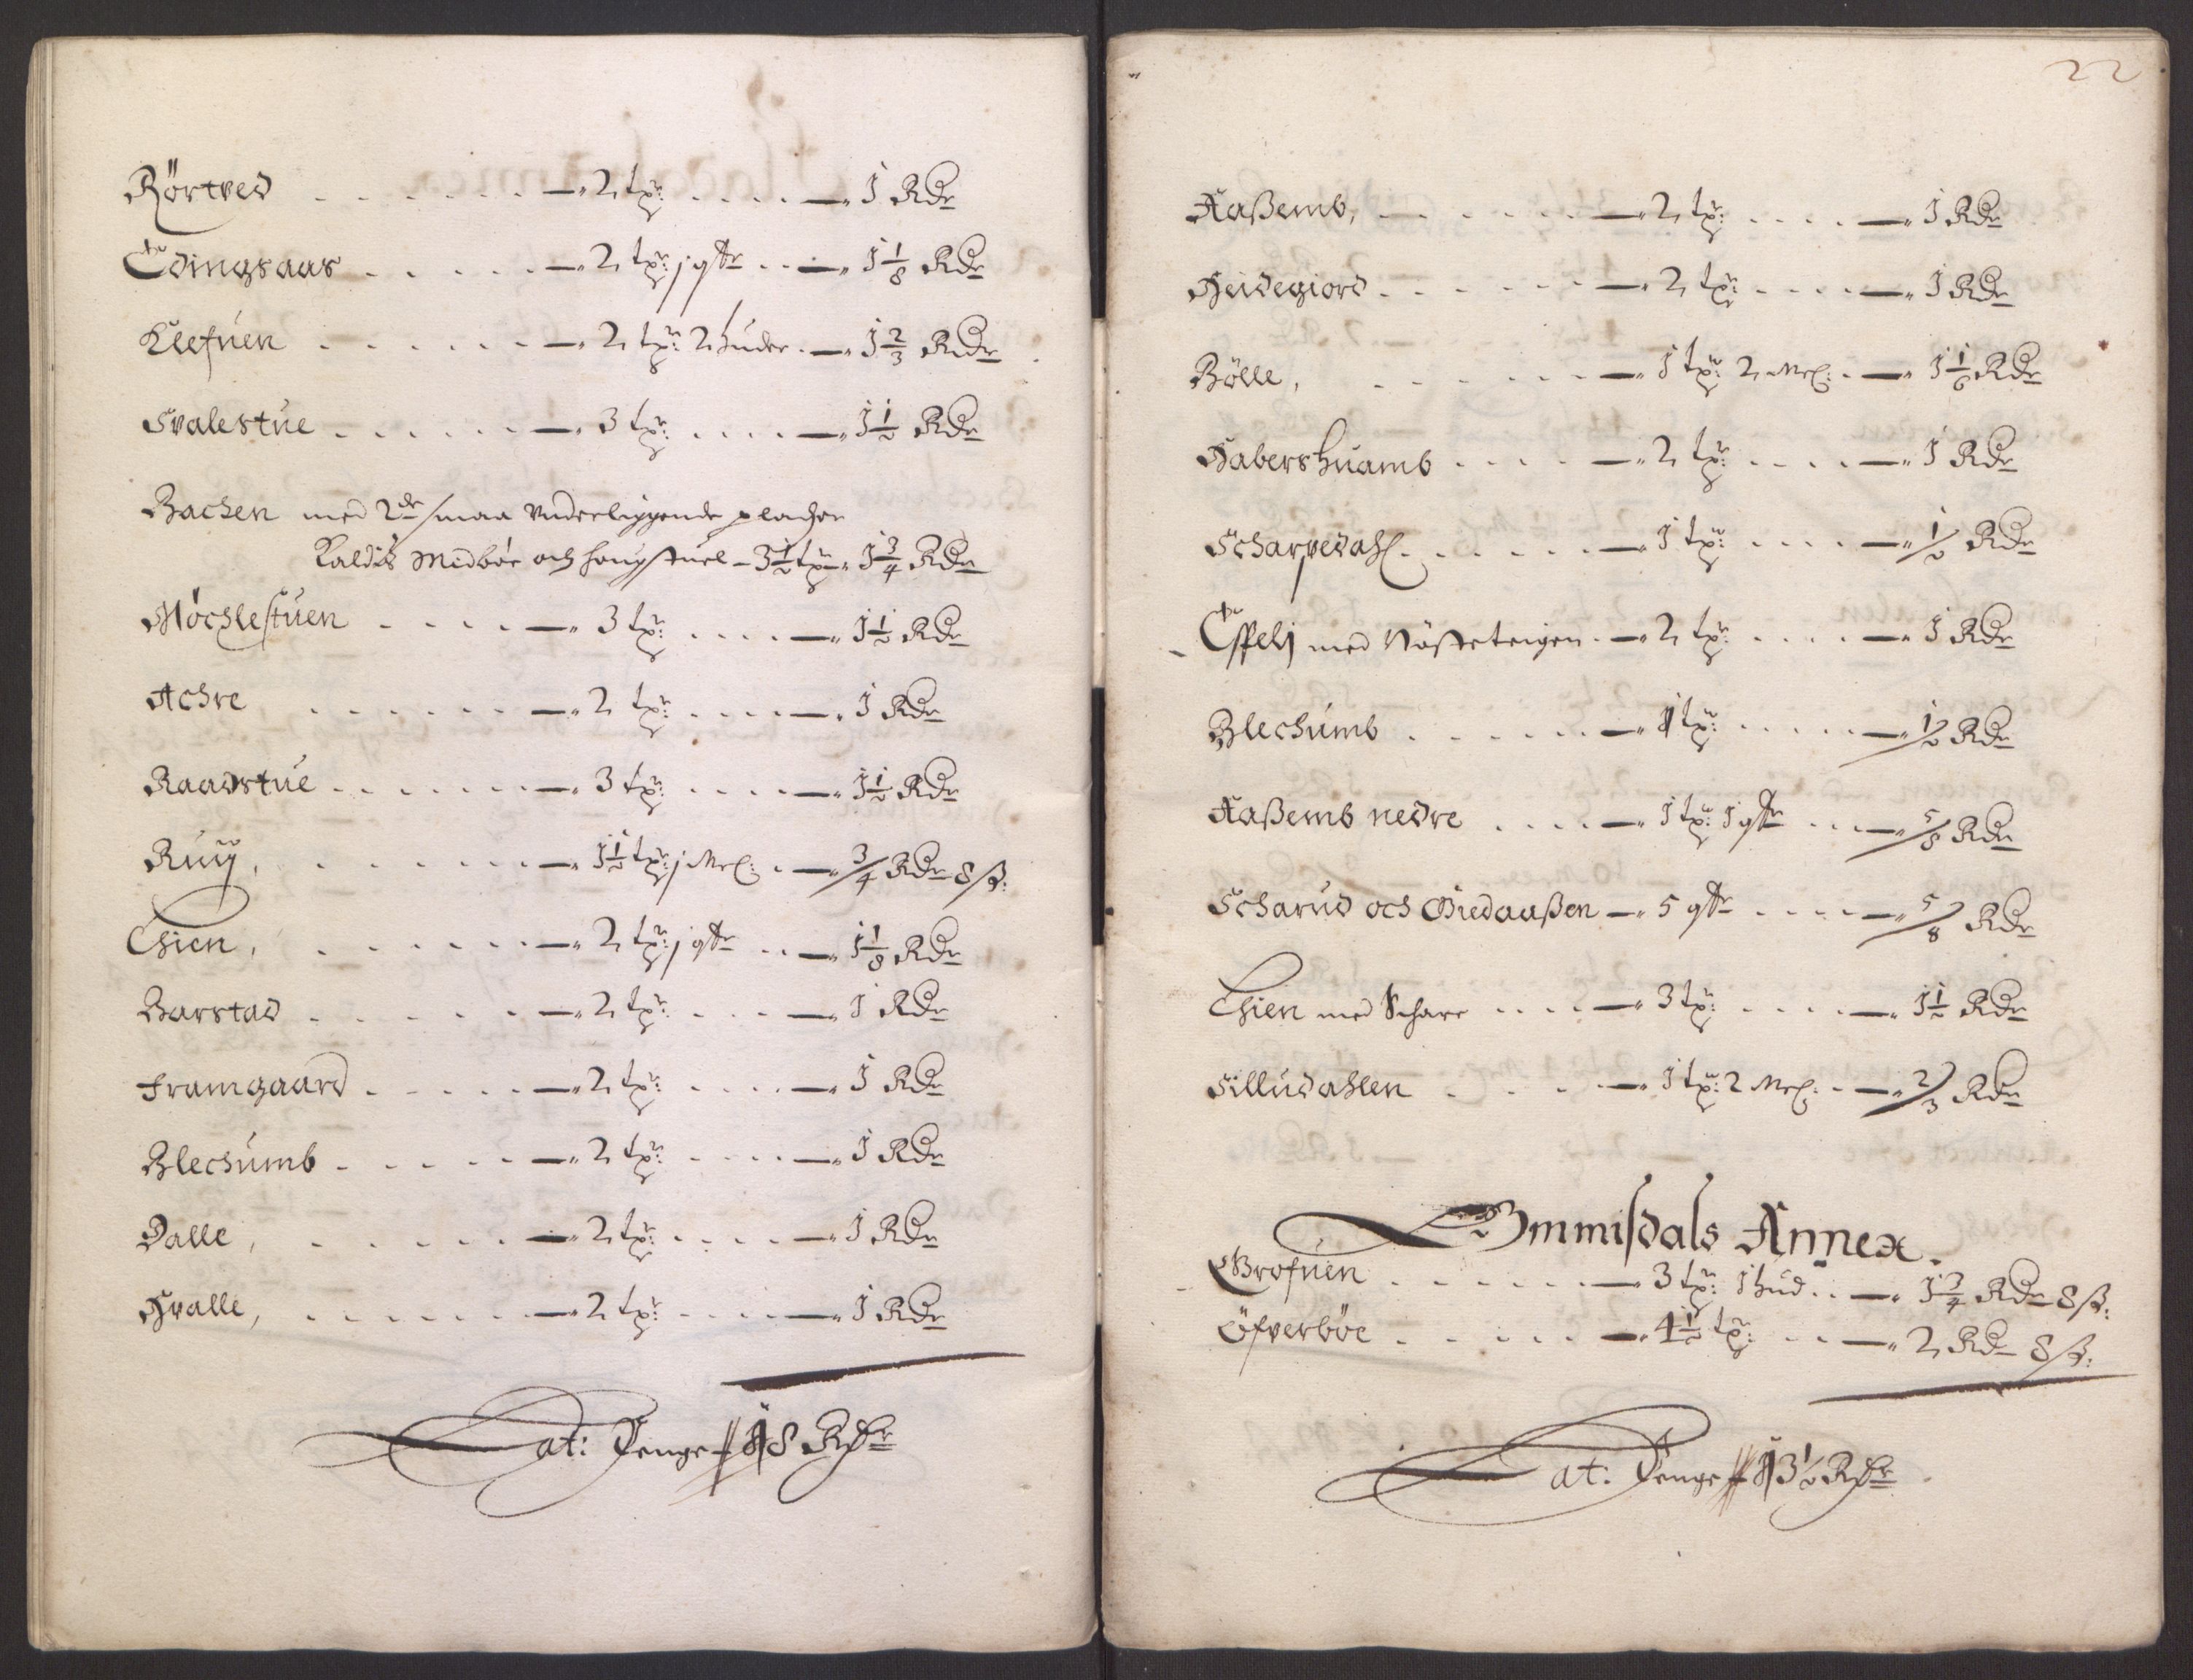 Rörtved . . . . . . — 2 tpr: . . . . — 1 Rdr
Edingsaas . . . . . — 2 tpr: j qtr . . — 1 1/8 Rdr
Klefuen . . . . . — 2 tpr: 2 huder . — 1 2/3 Rdr
Svalestue . . . . . . — 3 tpr: . . . . — 1 1/2 Rdr
Bachen med 2de smaa underliggende pladser
Kaldis Medböe och — 3 1/2 tpr — 1 3/4 Rdr
Möchlestuen . . . . — 3 tpr: . . . . — 1 1/2 Rdr
Achre . . . . . . — 2 tpr: . . . . — 1 Rdr
Raadstue . . . . . . — 3 tpr: . . . . — 1 1/2 Rdr
Ruÿ, . . . . . . — 1 1/2 tpr: j Mel: . — 3/4 Rdr 8 ß:
Thien, . . . . . . — 2 tpr: j qtr . . — 1 1/8 Rdr
Barstad . . . . . . — 2 tpr: . . . — 1 Rdr
Framgaard . . . . . — 2 tpr: . . . . — 1 Rdr
Blechumb . . . . . — 2 tpr: . . . . — 1 Rdr
Dalle, . . . . . . — 2 tpr: . . . . — 1 Rdr
Hvalle, . . . . . . — 2 tpr: . . . . — 1 Rdr
Lat: Penge 18 Rdr
22
Haßemb, . . . . . . — 2 tpr: . . . . — 1 Rdr
Heidegiord . . . . . . — 2 tpr: . . . . — 1 Rdr
Bölle, . . . . . . — 1 tpr: 2 Mel: . — 1 1/6 Rdr
Habershuamb . . . . — 2 tpr: . . . . — 1 Rdr
Scharpedahl . . . . . . — 1 tpr: . . . . — 1/2 Rdr
Espelj med Nösteteigen . — 2 tpr: . . . . — 1 Rdr
Blechumb . . . . . . — 1 tpr: . . . . — 1/2 Rdr
Haßemb nedre . . . . — 1 tpr: 1 qtr . . — 5/8 Rdr
Scharud och Giedaaßen — 5 qtr . . . . — 5/8 Rdr
Thien med Schare . . . . — 3 tpr: . . . . — 1 1/2 Rdr
Silludahlen . . . . — 1 tpr: 2 Mel: . — 2/3 Rdr
Ommisdals Annex.
Grofuen . . . . . . — 3 tpr: 1 hud . . — 1 3/4 Rdr 8 ß:
Öfverböe . . . . . — 4 1/2 tpr: . . — 2 Rdr 8 ß:
Lat: Penge 13 1/2 Rdr